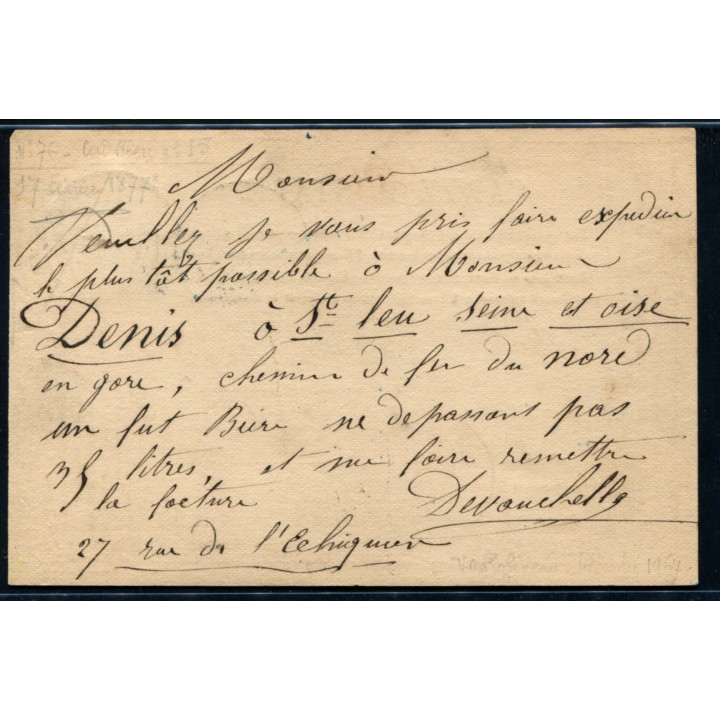 17 février 1877
Monsieur
Veuillez je vous pris faire expedier
le plus tôt possible à Monsieur
Denis à St leu seine et oise
en gare, chemin de fer du nord
un fut Biere ne depassant pas
35 litres, et me faire remettre
la facture Devauchelle
27 rue de l'Echiquier